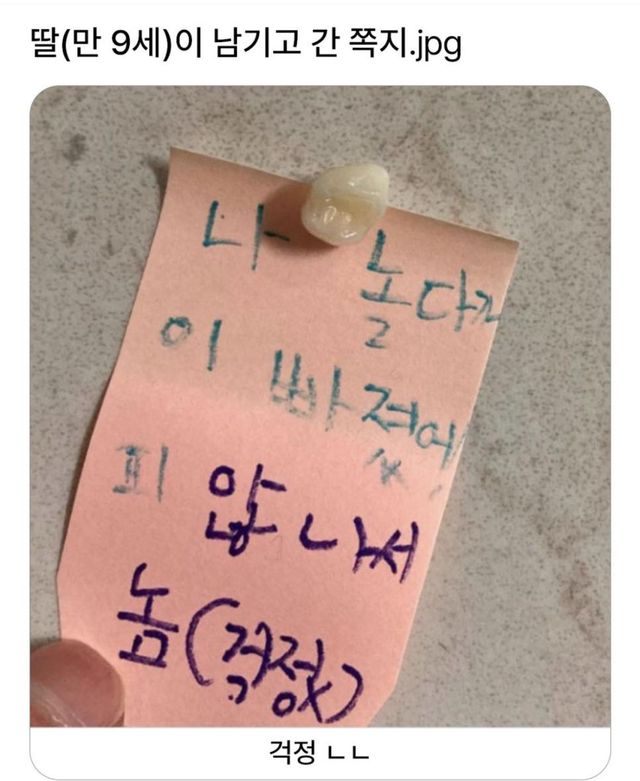 딸(만 9세)이 남기고 간 쪽지.jpg
나 놀다가
이 빠졌어
피 않나서
놈(걱정X)
걱정 ㄴㄴ